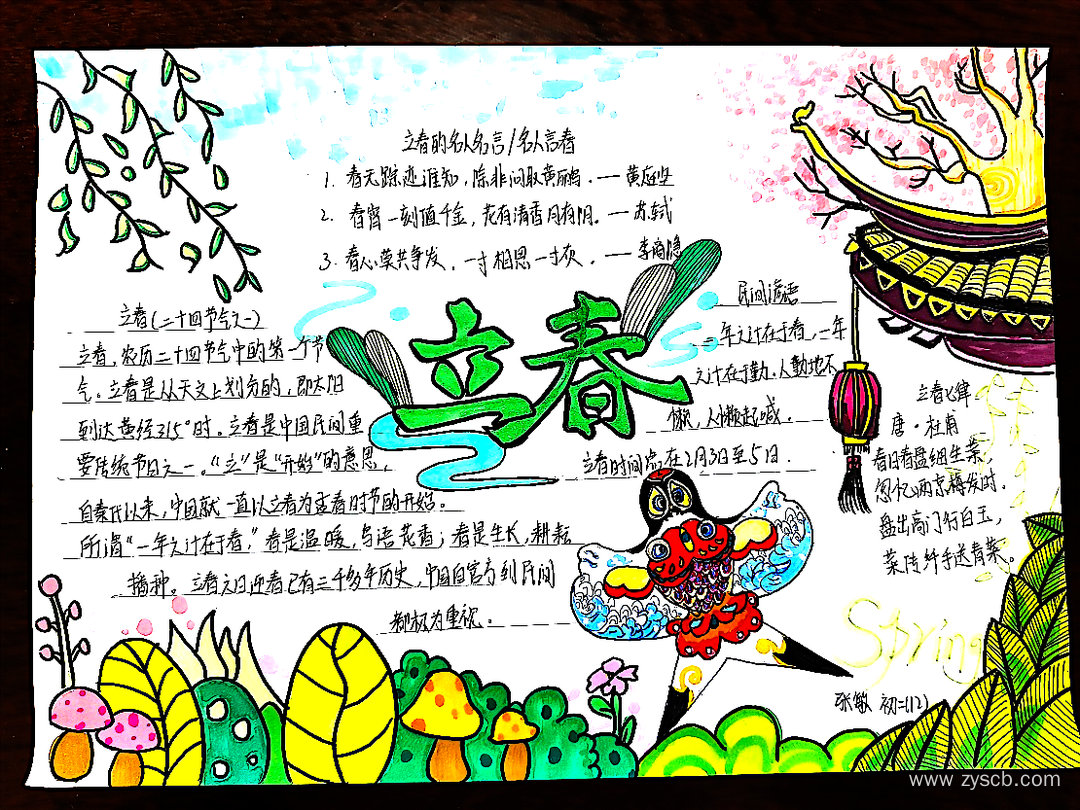 立春的名人名言/名人言春
1. 春无踪迹谁知,除非问取黄鹂。——黄庭坚
2. 春宵一刻值千金,花有清香月有阴。——苏轼
3. 春心莫共争发,一寸相思一寸灰。——李商隐
立春(二十四节气之一)
立春,农历二十四节气中的第一个节
气。立春是从天文上划分的,即太阳
到达黄经315°时。立春是中国民间重
要传统节日之一。“立”是“开始”的意思,
自秦代以来,中国就一直以立春为孟春时节的开始。
所谓“一年之计在于春”春是温暖,鸟语花香;春是生长,耕耘
播种。立春之日迎春已有三千多年历史,中国自官方到民间
都极为重视。
立春
民间谚语
一年之计在于春,一年
之计在于勤。人勤地不
懒,人懒起喊。
立春时间点在2月3日至5日.
立春飞律
唐·杜甫
春日春盘细生菜,
忽忆两京梅发时.
盘出高门行白玉,
菜传纤手送青菜。
Spring
张敏 初二(12)
www.zyscb.com